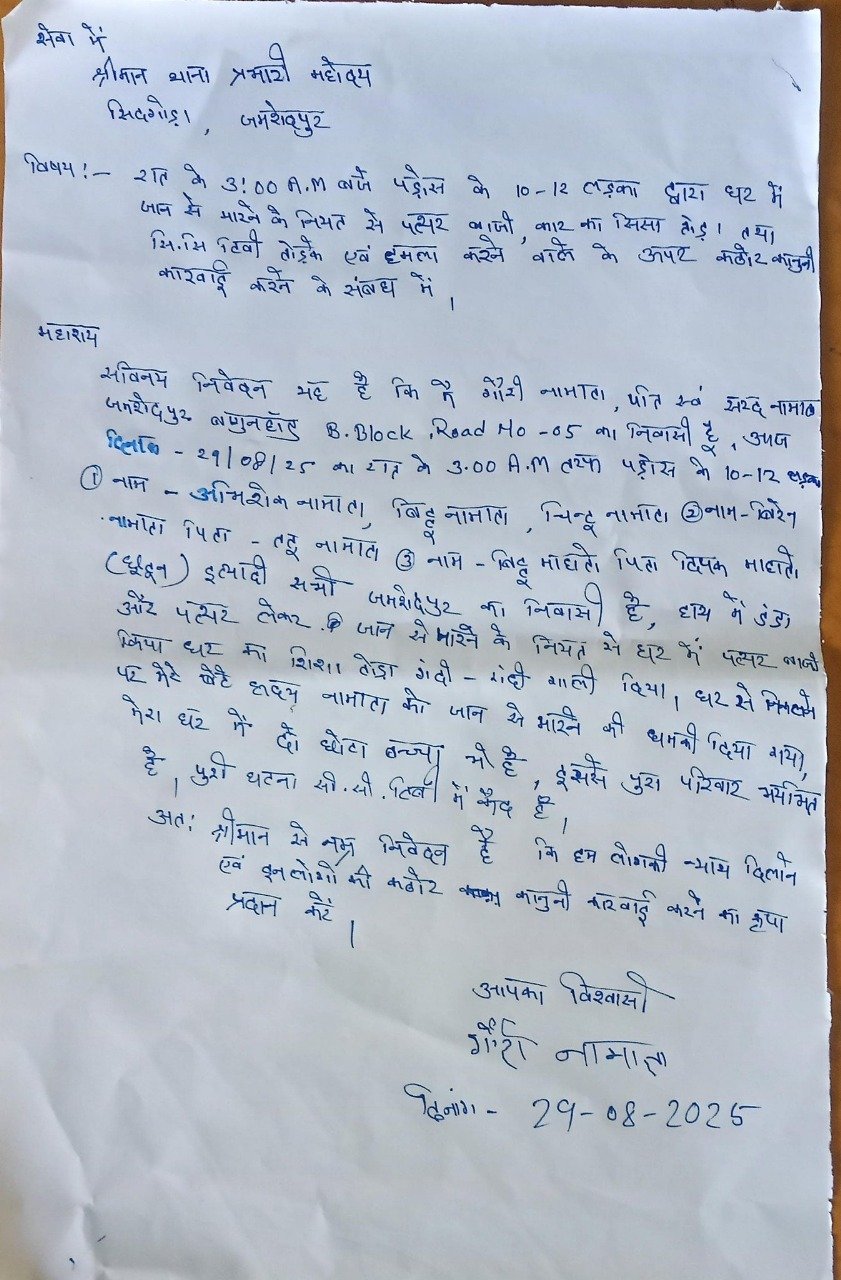 सेवा में
श्रीमान थाना प्रभारी महोदय
सिदगोड़ा, जमशेदपुर
विषय :- रात के 3:00 A.M बजे पड़ोस के 10-12 लड़का द्वारा घर में
जान से मारने के नियत से पत्थर बाजी, कार का सिसा तोड़ा तथा
सि.सि टिवी तोड़के एवं हमला करने वाले के ऊपर कठोर कानुनी
कारवाई करने के संबध में।
महाशय
सविनय निवेदन यह है कि मैं गौरी नामाता, पति स्वं सरद नामाता
जमशेदपुर B.Block, Road No -05 का निवासी हूँ, आज
दिनांक - 29/08/25 का रात के 3.00 A.M तरफ पड़ोस के 10-12 लड़का
① नाम - अभिशेक नामाता, बिट्टू नामाता, चिन्टू नामाता ② नाम - बिरेन
नामाता पिता - नामाता ③ नाम - बिट्टू माहातो पिता दिपक माहातो
इत्यादी सभी जमशेदपुर का निवासी है, हाथ में डंडा
और पत्थर लेकर जान से मारने के नियत से घर में पत्थर बाजी
किया घर का शिशा तोड़ा गंदी - गंदी गाली दिया, घर से निकलने
पर मेरे बेटे नामाता को जान से मारने की धमकी दिया गया,
मेरा घर में दो छोटा बच्चा भी है, इससे पुरा परिवार भयभित
है, पुरी घटना सी.सी.टिवी में कैद है।
अतः श्रीमान से नम्र निवेदन है कि हम लोगको न्याय दिलाने
एवं इनलोगो की कठोर कानुनी कारवाई करने का कृपा
प्रदान करें।
आपका विश्वासी
गौरी नामाता
दिनांग - 29-08-2025